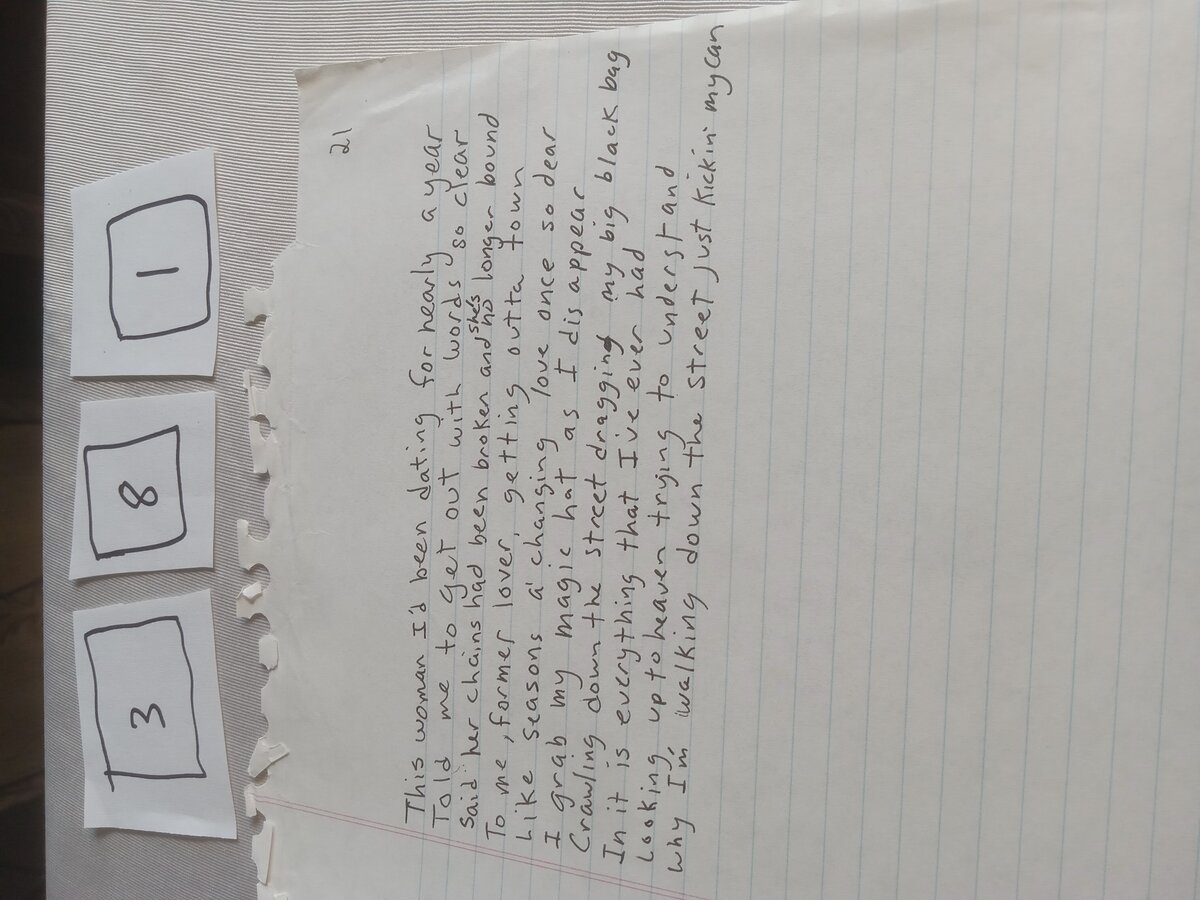 3
8
1
21
This woman I'd been dating for nearly a year
Told me to get out with words so clear
Said her chains had been broken and she's no longer bound
To me, former lover, getting outta town
Like seasons a changing love once so dear
I grab my magic hat as I disappear
Crawling down the street dragging my big black bag
In it is everything that I've ever had
Looking up to heaven trying to understand
why I'm walking down the street just kickin' my can